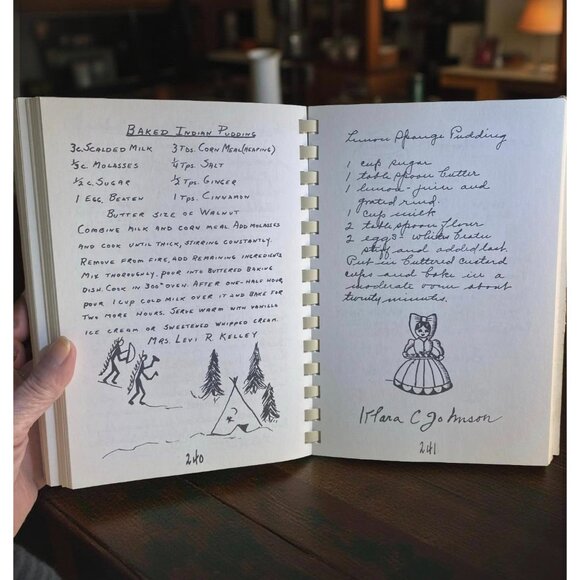 BAKED INDIAN PUDDING
3 C. SCALDED MILK 3 TBS. CORN MEAL (HEAPING)
⅓ C. MOLASSES ¼ TPS. SALT
½ C. SUGAR ½ TPS. GINGER
1 EGG, BEATEN 1 TPS. CINNAMON
BUTTER SIZE OF WALNUT
COMBINE MILK AND CORN MEAL ADD MOLASSES
AND COOK UNTIL THICK, STIRRING CONSTANTLY.
REMOVE FROM FIRE, ADD REMAINING INGREDIENTS
MIX THOROUGHLY. POUR INTO BUTTERED BAKING
DISH. COOK IN 300° OVEN. AFTER ONE-HALF HOUR,
POUR 1 CUP COLD MILK OVER IT AND BAKE FOR
TWO MORE HOURS. SERVE WARM WITH VANILLA
ICE CREAM OR SWEETENED WHIPPED CREAM.
MRS. LEVI R KELLEY
240
Lemon Sponge Pudding
1 cup sugar
1 table spoon butter
1 lemon-juice and
grated rind.
1 cup milk
2 table spoon flour
2 eggs whites beaten
stiff and added last.
Put in buttered custard
cups and bake in a
moderate oven about
twenty minutes.
Klara C Johnson
241